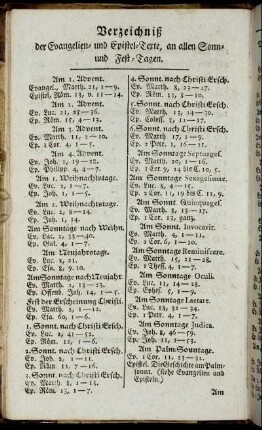 Verzeichniß
der Evangelien- und Epistel-Texte, an allen Sonn-
und Fest-Tagen.
Am 1. Advent.
Evangel. Matth. 21, 1—9.
Epistel, Röm. 13, v. 11—14.
Am 2. Advent.
Ev. Luc. 21, 25—36.
Ep. Röm. 15, 4—13.
Am 3. Advent.
Ev. Matth. 11, 2—10.
Ep. 1 Cor. 4, 1—5.
Am 4. Advent.
Ev. Joh. 1, 19—28.
Ep. Philipp. 4, 4—7.
Am 1. Weihnachtstage.
Ev. Luc. 2, 1—7.
Ep. Joh. 1, 1—5.
Am 2. Weihnachtstage.
Ev. Luc. 2, 8—14.
Ep. Joh. 1, 14.
Am Sonntage nach Weihn.
Ev. Luc. 2, 33—40.
Ep. Gal. 4, 1—7.
Am Neujahrstage.
Ev. Luc. 2, 21.
Ep. Esa. 9, 6.
Am Sonntage nach Neujahr.
Ev. Matth. 2, 13—23.
Ep. Offenb. Joh. 14, 1—5.
Fest der Erscheinung Christi.
Ev. Matth. 2, 1—12.
Ep. Esa. 60, 1—6.
1. Sonnt. nach Christi Ersch.
Ev. Luc. 2, 41—52.
Ep. Röm. 12, 1—6.
2. Sonnt. nach Christi Ersch.
Ev. Joh. 2, 1—11.
Ep. Röm. 12, 7—16.
3. Sonnt. nach Christi Ersch.
Ev. Matth. 8, 1—13.
Ep. Röm. 13, 1—7.
4. Sonnt. nach Christi Ersch.
Ev. Matth. 8, 23—27.
Ep. Röm. 13, 8—10.
5. Sonnt. nach Christi Ersch.
Ev. Matth. 13, 24—30.
Ep. Coloss. 3, 12—17.
6. Sonnt. nach Christi Ersch.
Ev. Matth. 17, 1—9.
Am Sonntage Septuages.
Ev. Matth. 20, 1—16.
Ep. 1 Cor. 9, 24 bis C. 10, 5.
Am Sonntage Sexagesimae.
Ev. Luc. 8, 4—15.
Ep. 2 Cor. 11, 19 bis C. 12, 9.
Am Sonnt. Quinquages.
Ev. Matth. 3, 13—17.
Ep. 1 Cor. 13, ganz.
Am Sonnt. Invocavit.
Ev. Matth. 4, 1—11.
Ep. 2 Cor. 6, 1—10.
Am Sonntage Reminiscere.
Ev. Matth. 15, 21—28.
Ep. 1 Thess. 4, 1—7.
Am Sonntage Oculi.
Ev. Luc. 11, 14—28.
Ep. Ephes. 5, 1—9.
Am Sonntage Laetare.
Ev. Luc. 18, 31—34.
Ep. 1 Petr. 4, 1—7.
Am Sonntage Judica.
Ev. Joh. 8, 46—59.
Am Palm-Sonntage.
Ev. 1 Cor. 11, 23—32.
Epistel. Die Geschichte am Palm-
sonnt. (siehe Evangelien und
Episteln.)
Am